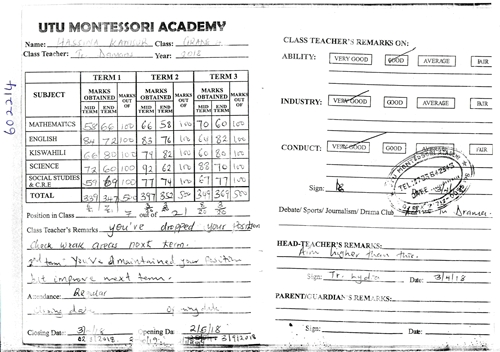 UTU MONTESSORI ACADEMY
Name: Class:
Class Teacher: Tr. Year: 2018
TERM 1 TERM 2 TERM 3
SUBJECT MARKS OBTAINED MARKS OUT OF MARKS OBTAINED MARKS OUT OF MARKS OBTAINED MARKS OUT OF
MID TERM END TERM MID TERM END TERM MID TERM END TERM
MATHEMATICS 58 66 100 66 58 100 70 60 100
ENGLISH 84 72 100 83 76 100 64 82 100
KISWAHILI 66 80 100 79 82 100 60 80 100
SCIENCE 72 60 100 92 62 100 88 70 100
SOCIAL STUDIES & C.R.E 59 69 100 77 74 100 67 77 100
TOTAL 339 347 500 397 352 500 349 369 500
Position in Class 7 out of 21
Class Teacher's Remarks you've dropped your position
Check weak areas next term.
2nd term - You've maintained your position
but improve next term.
Attendance: Regular
Closing date Opening date
Closing Day: Opening Day 2/5/18
CLASS TEACHER'S REMARKS ON:
ABILITY: VERY GOOD GOOD AVERAGE FAIR
INDUSTRY: VERY GOOD GOOD AVERAGE FAIR
CONDUCT: VERY GOOD GOOD AVERAGE FAIR
UTU MONTESSORI ACADEMY
Sign:
Debate/ Sports/ Journalism/ Drama Club Drama.
HEAD-TEACHER'S REMARKS:
Aim higher than this.
Sign: Tr. Lydia Date: 3/4/18
PARENT/GUARDIAN'S REMARKS:
Sign: Date:
602214